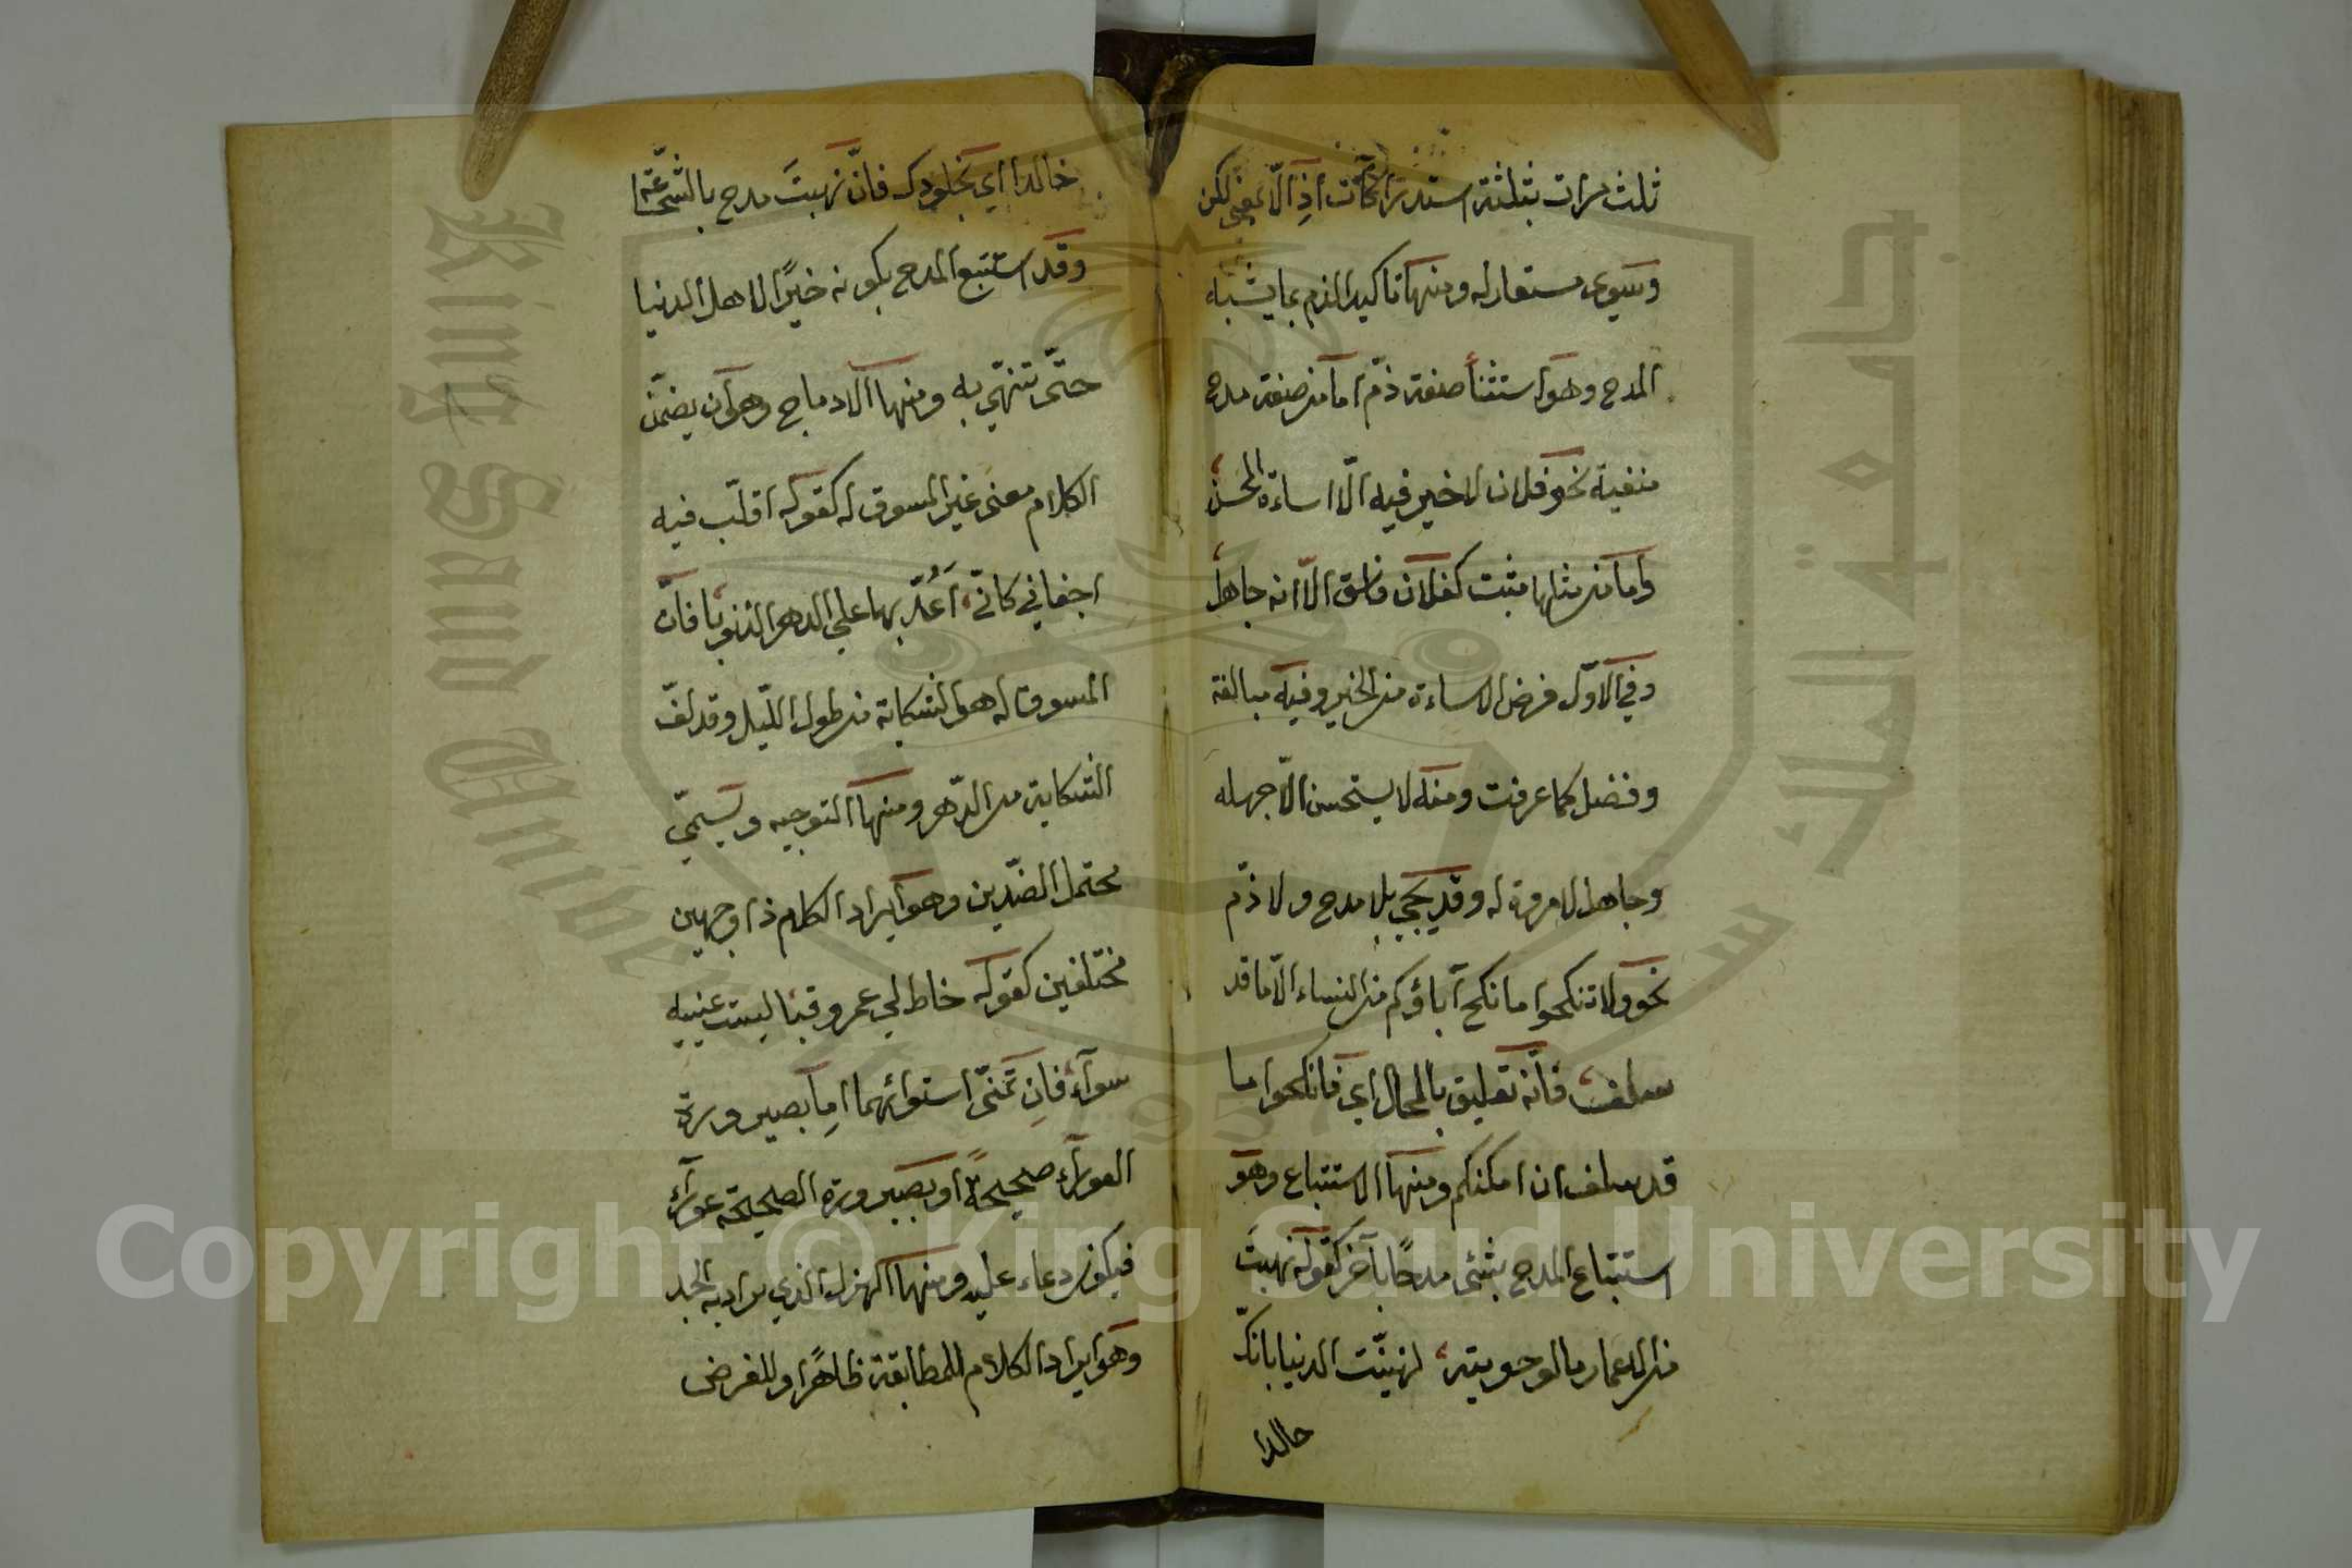 ثلث مرات بثلثة استدراكات اذ الّا بمعنى لكن
وسوى مستعار له ومنها تاكيد الذم بما يشبه
المدح وهو استثنأ صفة ذمّ اما من صفة مدح
منفية نحو فلان لا خير فيه الّا اساءة المحسن
واما من مثلها مثبت كفلان فاسق الّا انه جاهل
وفي الاوّل فرض الاساءة من الخير وفيه مبالغة
وفضل كما عرفت ومنه لا يستحسن الّا جهله
وجاهل لا مروة له وقد يجئ بلا مدح ولا ذمّ
نحو ولا تنكحوا ما نكح آباؤكم من النساء الّا ما قد
سلف فانّه تعليق بالمحال اي فانكحوا ما
قد سلف ان امكنكم ومنها الاستتباع وهو
استتباع المدح بشئ مدحًا بآخر كقوله نهبتَ
من الاعمار ما لو حويته لهنيّت الدنيا بانكّ
خالدا
خالدا اي بخلودك فانّ نهبتَ مدح بالشجاعة
وقد استتبع المدح بكونه خيرًا لاهل الدنيا
حتّى تتهنّي به ومنها الادماج وهو ان يضمّن
الكلام معنى غير المسوق له كقوله اقلّب فيه
اجفاني كانّي اَعُدّ بها على الدهر الذنوبا فانّ
المسوق له هو الشكاية من طول اللّيل وقد لفّ
الشكاية من الدّهر ومنها التوجيه ويسمّي
محتمل الضدّين وهو ايراد الكلام ذا وجهين
مختلفين كقوله خاط لي عمرو قبا ليت عينيه
سوآء فانِ تمنّى استوائهما اِما بصيرورة
العورآء صحيحةً او بصيرورة الصحيحة عورآء
فيكون دعاء عليه ومنها الهزل الذي يراد به الجد
وهو ايراد الكلام للمطابقة ظاهرًا وللغرض
King Saud University
جامعة الملك سعود
1957
Copyright © King Saud University